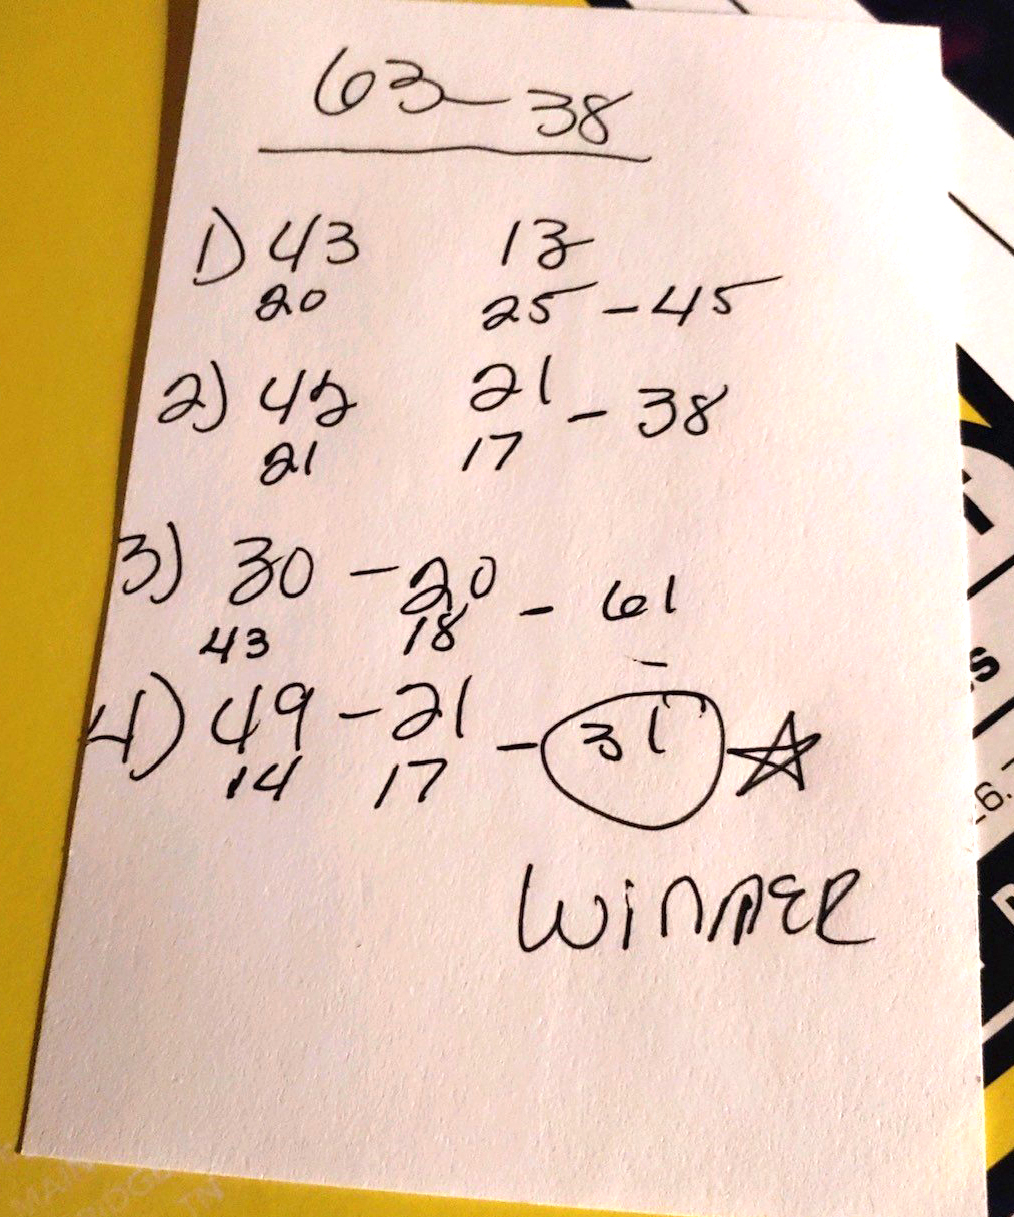 63-38
1) 43 13
20 25 - 45
2) 42 21 - 38
21 17
3) 30 - 20 - 61
43 18
4) 49 - 21 - 31
14 17
WINNER
TN